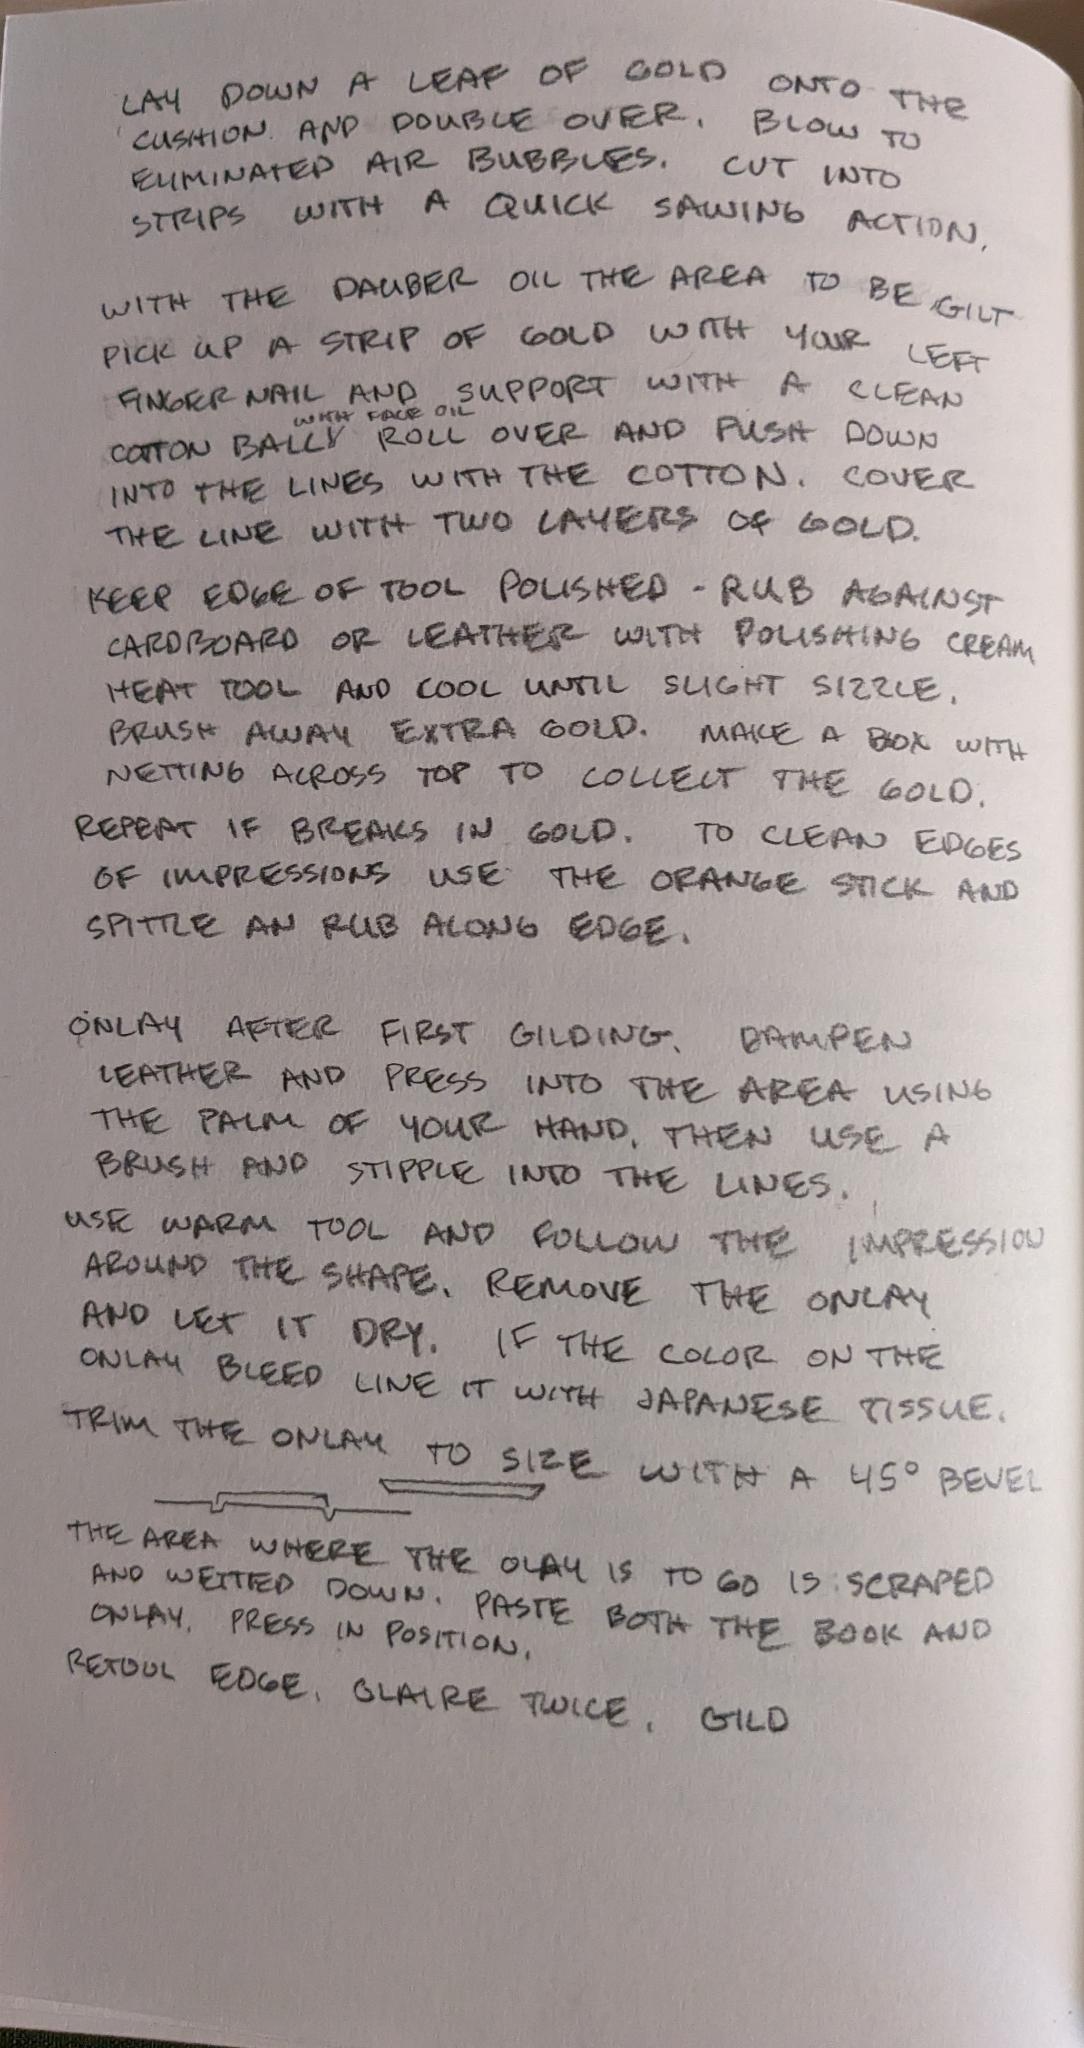 LAY DOWN A LEAF OF GOLD ONTO THE
CUSHION. AND DOUBLE OVER. BLOW TO
ELIMINATED AIR BUBBLES. CUT INTO
STRIPS WITH A QUICK SAWING ACTION.
WITH THE DAUBER OIL THE AREA TO BE GILT
PICK UP A STRIP OF GOLD WITH YOUR LEFT
FINGER NAIL AND SUPPORT WITH A CLEAN
WITH FACE OIL
COTTON BALL ROLL OVER AND PUSH DOWN
INTO THE LINES WITH THE COTTON. COVER
THE LINE WITH TWO LAYERS OF GOLD.
KEEP EDGE OF TOOL POLISHED - RUB AGAINST
CARDBOARD OR LEATHER WITH POLISHING CREAM
HEAT TOOL AND COOL UNTIL SLIGHT SIZZLE.
BRUSH AWAY EXTRA GOLD. MAKE A BOX WITH
NETTING ACROSS TOP TO COLLECT THE GOLD.
REPEAT IF BREAKS IN GOLD. TO CLEAN EDGES
OF IMPRESSIONS USE THE ORANGE STICK AND
SPITTLE AN RUB ALONG EDGE.
ONLAY AFTER FIRST GILDING. DAMPEN
LEATHER AND PRESS INTO THE AREA USING
THE PALM OF YOUR HAND. THEN USE A
BRUSH AND STIPPLE INTO THE LINES.
USE WARM TOOL AND FOLLOW THE IMPRESSION
AROUND THE SHAPE. REMOVE THE ONLAY
AND LET IT DRY. IF THE COLOR ON THE
ONLAY BLEED LINE IT WITH JAPANESE TISSUE.
TRIM THE ONLAY TO SIZE WITH A 45° BEVEL
THE AREA WHERE THE OLAY IS TO GO IS SCRAPED
AND WETTED DOWN. PASTE BOTH THE BOOK AND
ONLAY. PRESS IN POSITION.
RETOOL EDGE. GLAIRE TWICE. GILD